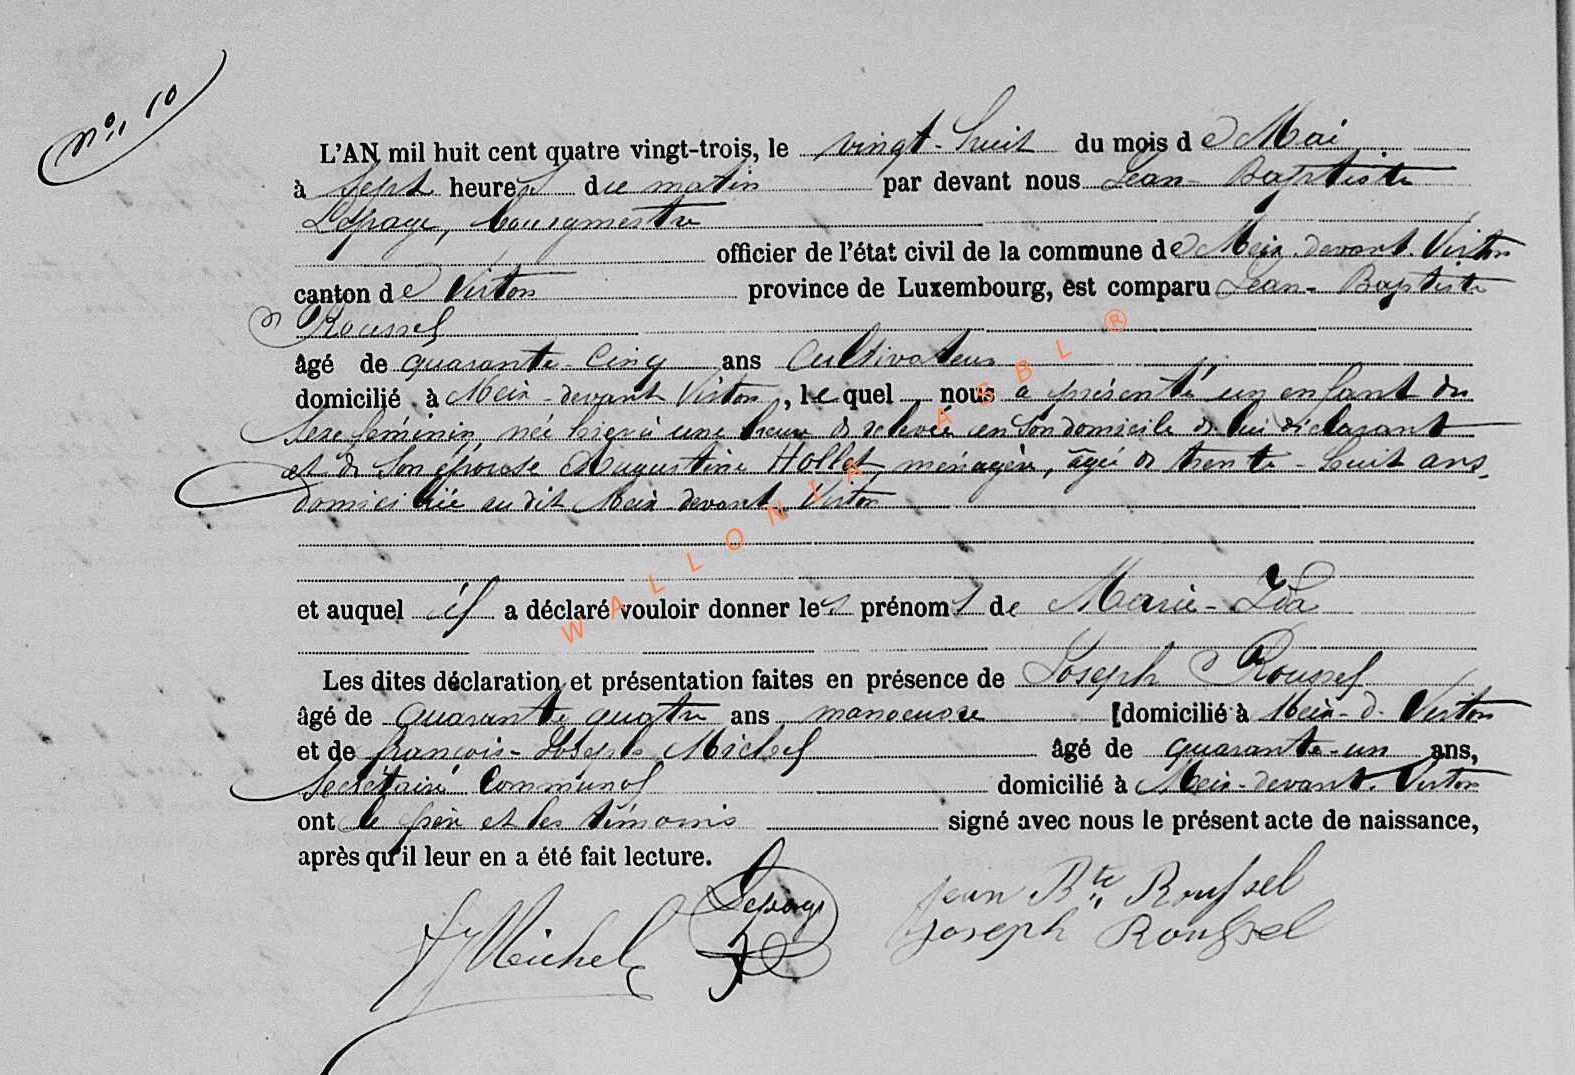 N°. 10
L'AN mil huit cent quatre vingt-trois, le vingt-huit du mois de Mai
à sept heures du matin par devant nous Jean-Baptiste
Lepage, bourgmestre
officier de l'état civil de la commune de Meix-devant-Virton
canton de Virton province de Luxembourg, est comparu Jean-Baptiste
Roussel
âgé de quarante-cinq ans cultivateur
domicilié à Meix-devant Virton, lequel nous a présenté un enfant du
sexe féminin, née hier à une heure de relevée en son domicile de lui déclarant
et de son épouse Augustine Hollet ménagère, âgée de trente-huit ans,
domiciliée au dit Meix-devant Virton
et auquel il a déclaré vouloir donner les prénoms de Marie-Léa
Les dites déclaration et présentation faites en présence de Joseph Roussel
âgé de quarante quatre ans manoeuvre domicilié à Meix-d-Virton
et de françois-Joseph Michel âgé de quarante-un ans,
secrétaire communal domicilié à Meix-devant-Virton
ont le père et les témoins signé avec nous le présent acte de naissance,
après qu'il leur en a été fait lecture.
Jean Bte Roussel
Lepage
fJMichel
Joseph Roussel
WALLONIA ASBL ®